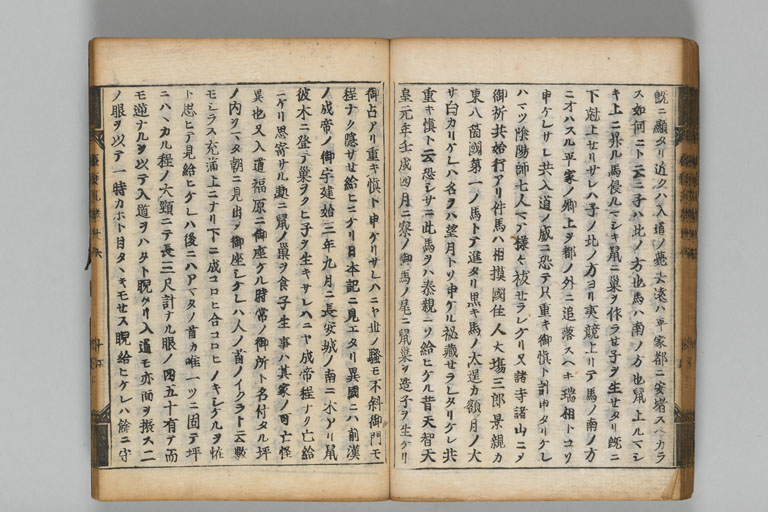 既ニ顯タリ近クハ入道ノ薨去遠ハ平家都ニ安堵スヘカラ
ス如何ニト云ニ子ハ北ノ方也馬ハ南ノ方也鼠上ルマシ
キ上ニ昇ル馬侵ルマシキ鼠ニ巣ヲ作ラセ子ヲ生セタリ既ニ
下尅上セリサレハ子ノ北ノ方ヨリ夷競上リテ馬ノ南ノ方
ニオハスル平家ノ卿上ヲ都ノ外ニ追落スヘキ瑞相トコソ
申ケレサレ共入道ノ威ニ恐テ只重キ御慎ト計申タリケレ
ハマツ陰陽師七人マテ様々祓セラレケリ又諸寺諸山ニメ
御祈共始行アリ件馬ハ相摸國住人大塲三郎景親カ
東八箇國第一ノ馬トテ進タリ黒キ馬ノ太逞カ額月ノ大
サ白カリケレハ名ヲハ望月トソ申ケル祕藏セラレタリケレ共
重キ慎ト云恐シサニ此馬ヲハ泰親ニソ給ヒケル昔天智天
皇元年壬戌四月ニ寮ノ御馬ノ尾ニ鼠巣ヲ造子ヲ生ケリ
御占アリ重キ慎ト申ケリサレハニヤ世ノ騒モ不斜御門モ
程ナク隠サセ給ヒニケリ日本記ニ見エタリ異國ニハ前漢
ノ成帝ノ御宇建始三年九月ニ長安城ノ南ニ木アリ鼠
彼木ニ登テ巣ヲクヒ子ヲ生キサレハニヤ成帝程ナク亡給
ニケリ思寄サル動ニ鼠ノ巣ヲ食子生事ハ其家ノ可亡怪
異也又入道福原ニ御座ケル時常ノ御所ト名付タル坪
ノ内ヲマタ朝ニ見出テ御座シケレハ人ノ首ノイクラト云數
モシラス充滿上ニナリ下ニ成コロヒ合コロヒノキシケルヲ恠
ト思ヒテ見給ヒケレハ後ニハアマタノ首カ唯一ツニ固テ坪
ニハヽカル程ノ大頸ニテ長三尺計ナル眼ノ四五十有テ而
モ逆ナルヲ以テ入道ヲハタト睨ケリ入道モ亦面ヲ振ス二
ノ眼ヲ以テ一時カホト目タヽキモセス睨給ヒケレハ餘ニ守